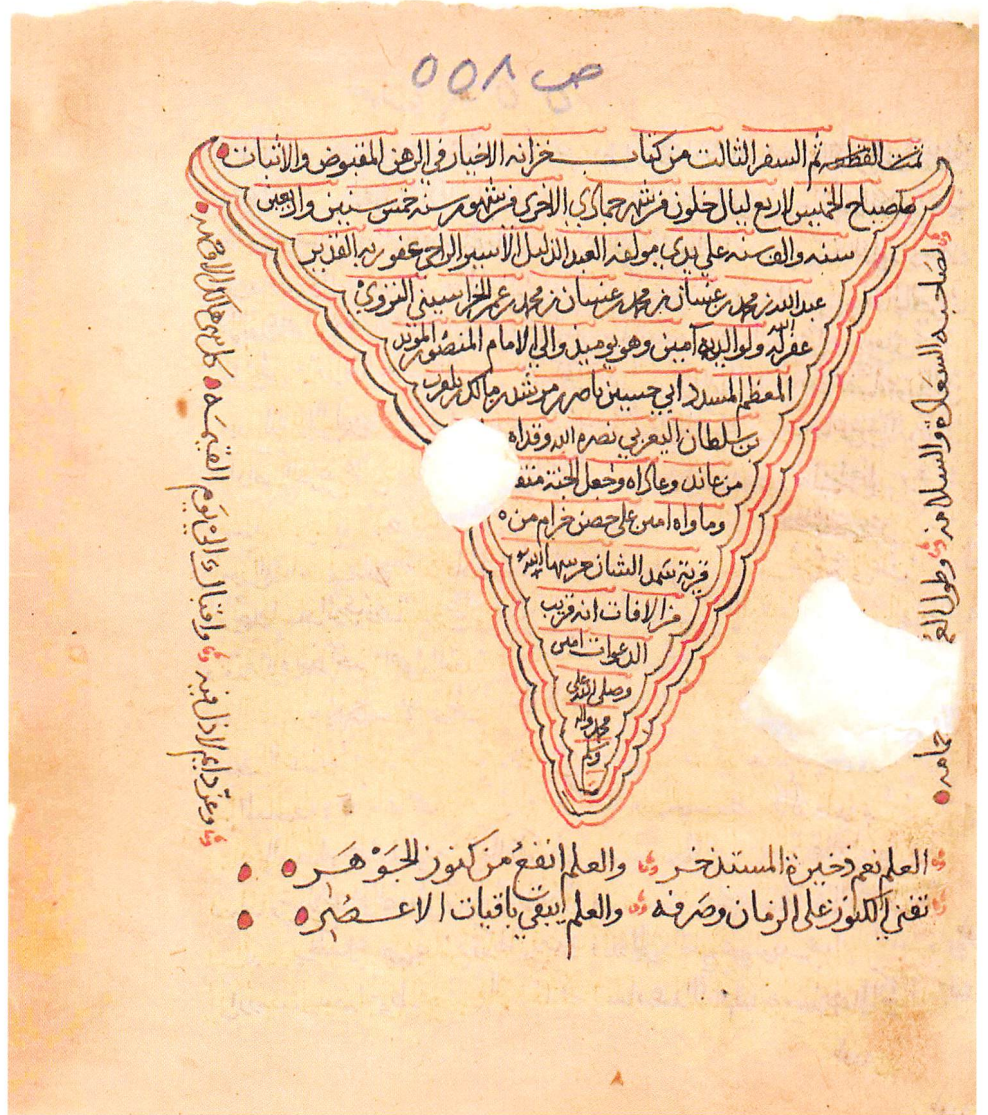 ص ٥٥٨
تم السفر الثالث من كتاب خزانه الاخيار في الرهن المقبوض والاثبات
صباح الخميس لاربع ليال خلون من شهر جمادي الاخرى من شهور سنه خمس سنين واربعين
سنه والف سنه على يدي مولفه العبد الذليل الاسير الراجي عفو ربه القدير
عبدالله بن محمد بن غسان بن محمد بن غسان بن محمد بن عمر الخراسيني النزوي
غفر الله له ولوالديه آمين وهو يوميذ والي الامام المنصور المويد
المعظم المسدد ابي حسين ناصر بن مرشد بن مالك بن بلعرب
بن سلطان اليعربي نصره الله وقداه
من عاند وعاداه وجعل الجنة
وماواه امين على حصن خرام من
قرية سمد الشان حرسها الله
من الافات انه قريب
الدعوات امين
وصلى الله على
محمد واله
وسلم
لصاحبه السعادة والسلامه وطول العمر حمامه
كل بهي هالك الا وجهه
وعز دايم لا ذل فيه واقبال الى يوم القيمه
العلم نعم ذخيرة المستذخر والعلم انفع من كنوز الجوهر
تفني الكنوز على الزمان وصرفه والعلم يبقى باقيات الاعصر